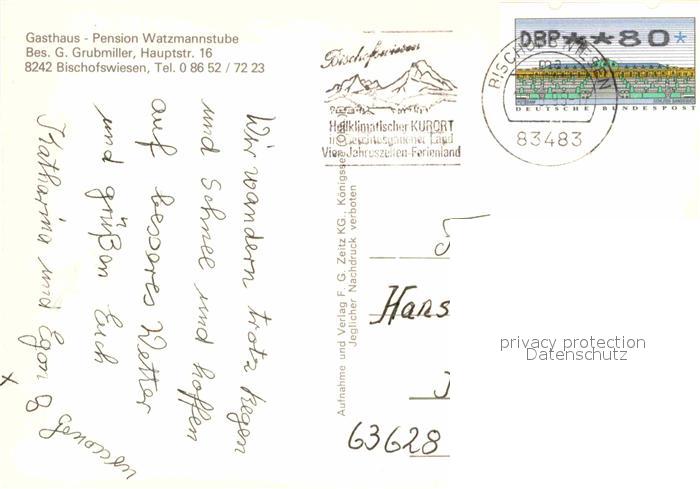 Gasthaus - Pension Watzmannstube
Bes. G. Grubmiller, Hauptstr. 16
8242 Bischofswiesen, Tel. 0 86 52 / 72 23
Wir wandern trotz Regen
und Schnee und hoffen
auf besseres Wetter
und grüßen Euch
Katharina und Egon
Aufnahme und Verlag F. G. Zeitz KG., Königssee/Obb.
Jeglicher Nachdruck verboten
Bischofswiesen
Heilklimatischer KURORT
im Berchtesgadener Land
Vier-Jahreszeiten-Ferienland
BISCHOFSWIESEN
83483
DBP**80*
DEUTSCHE BUNDESPOST
Hans
63628
privacy protection
Datenschutz